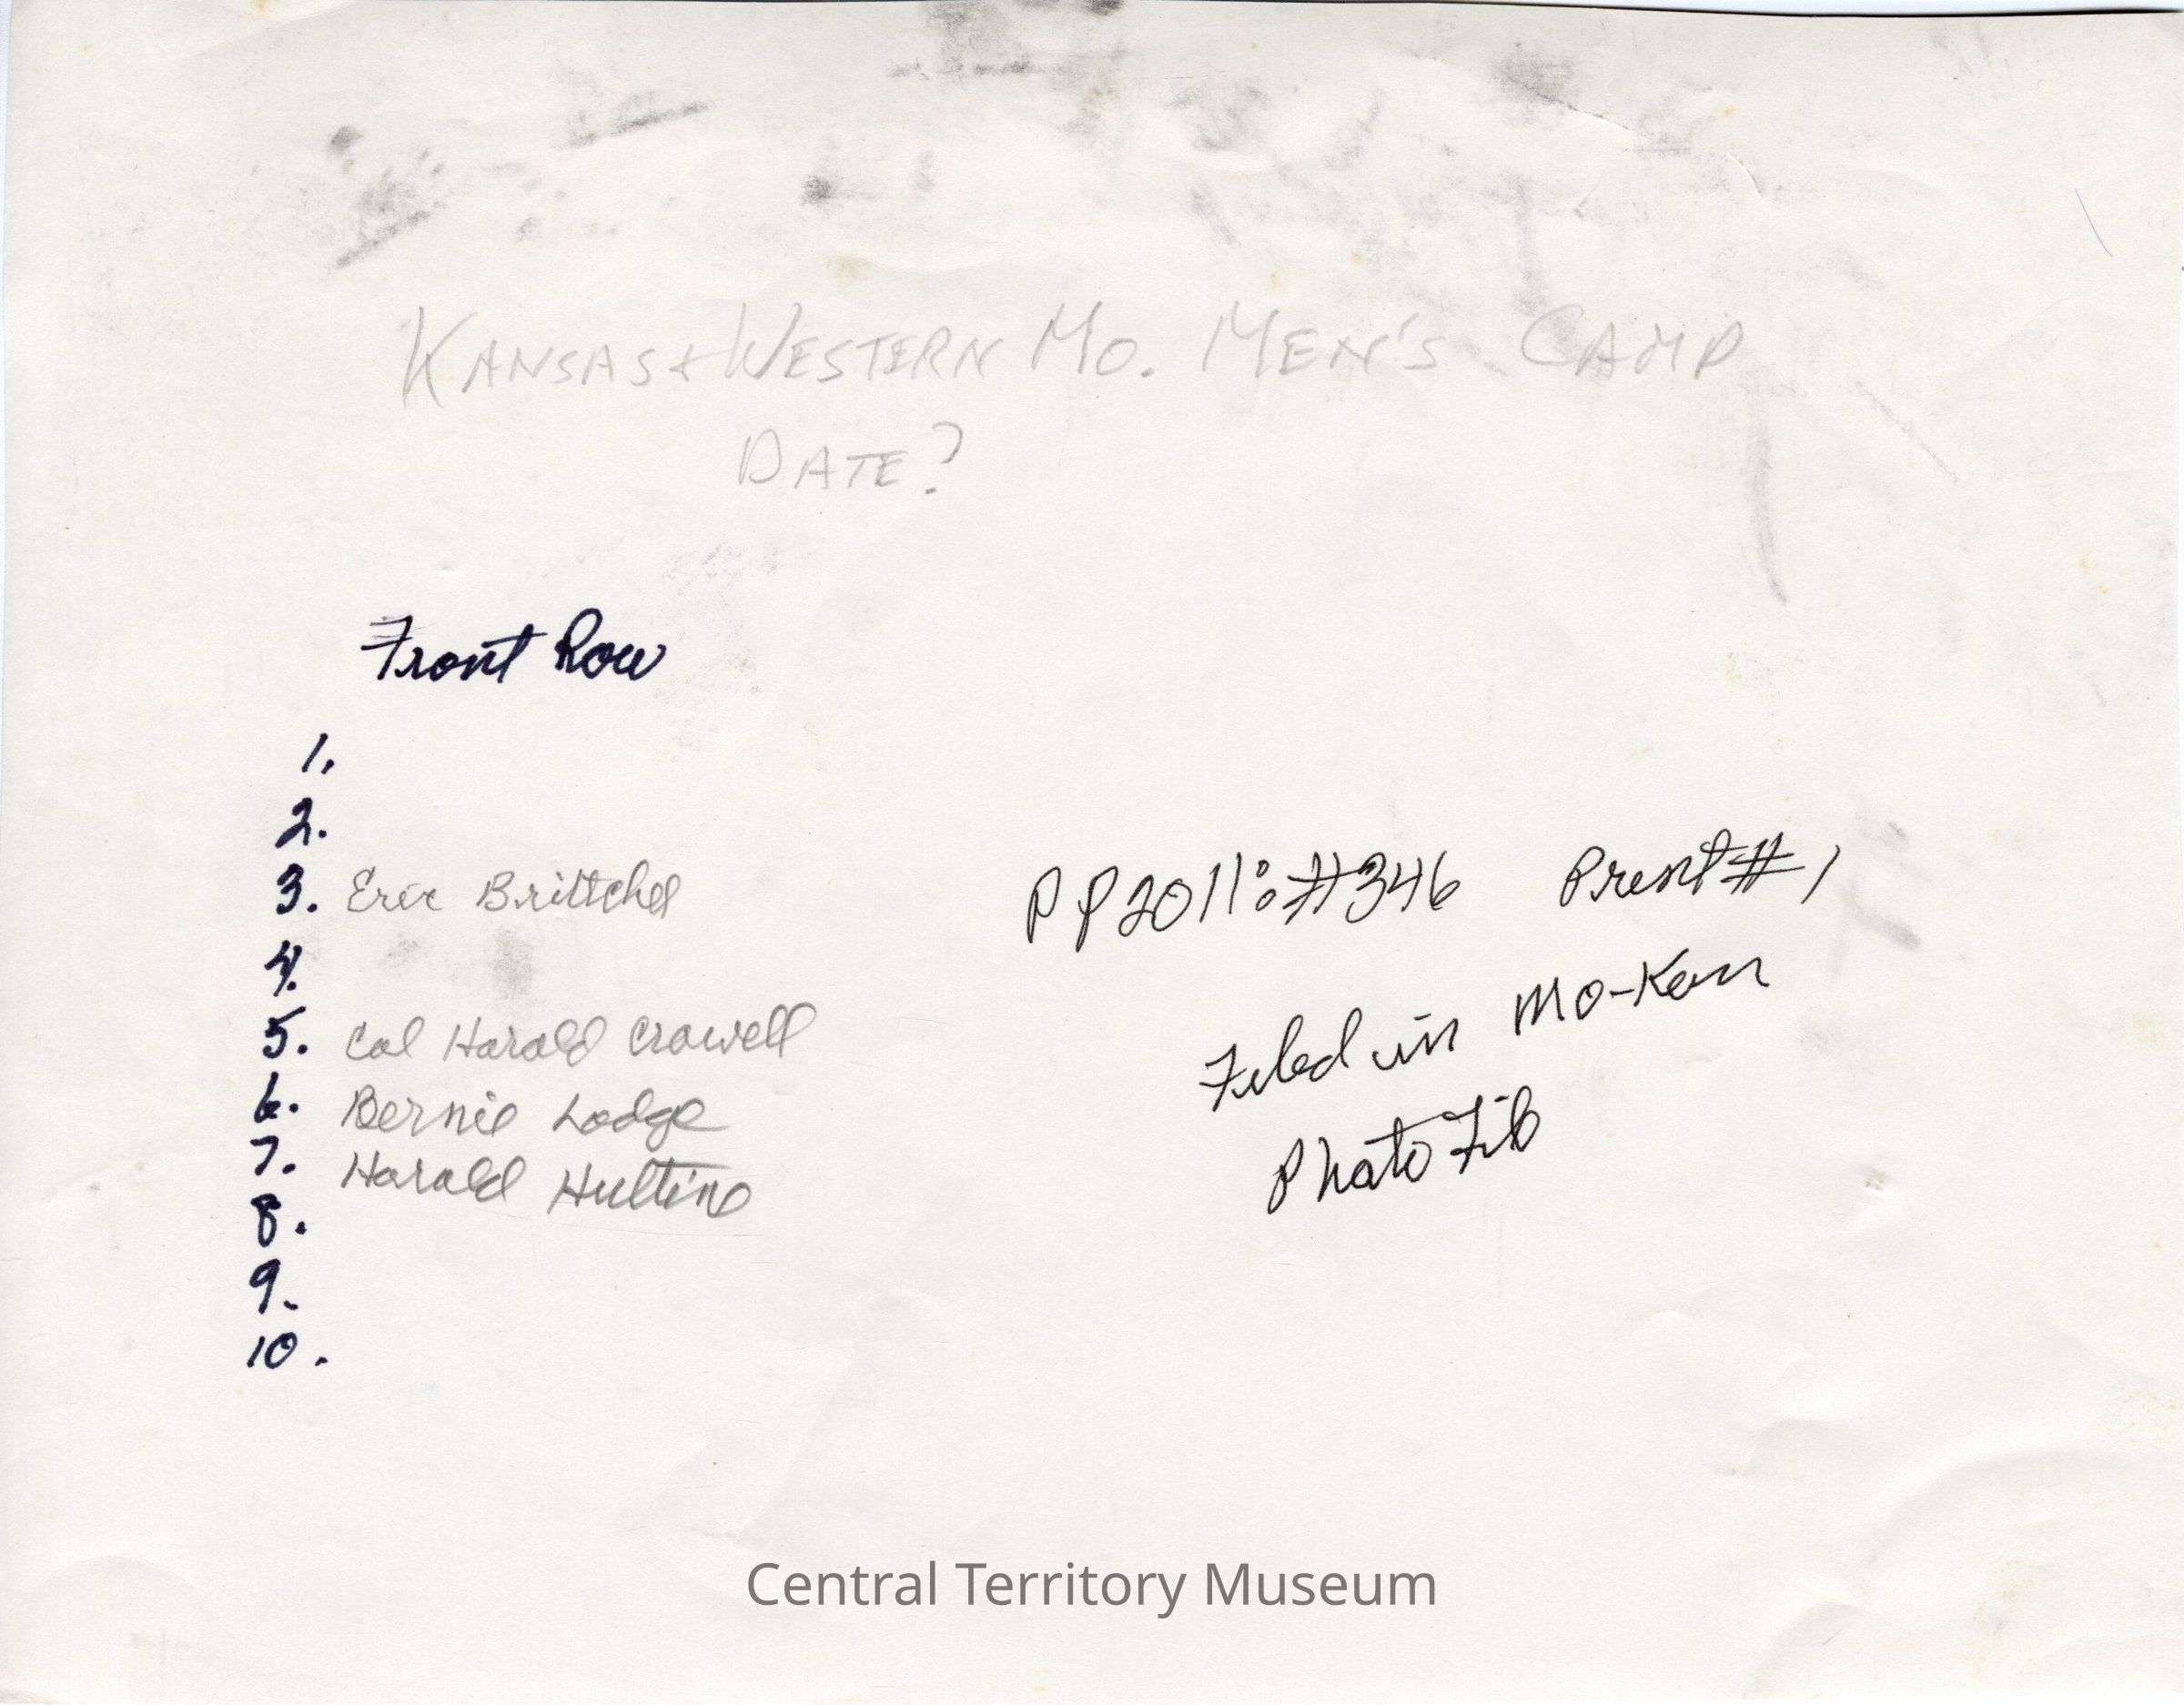 KANSAS & WESTERN MO. MEN'S CAMP
DATE?
Front Row
1.
2.
3. Eric Brittchel
4.
5. Col Harald Crowell
6. Bernie Lodge
7. Harald Hulting
8.
9.
10.
PP2011:#346 Print #1
Filed in Mo-Kan
Photo File
Central Territory Museum